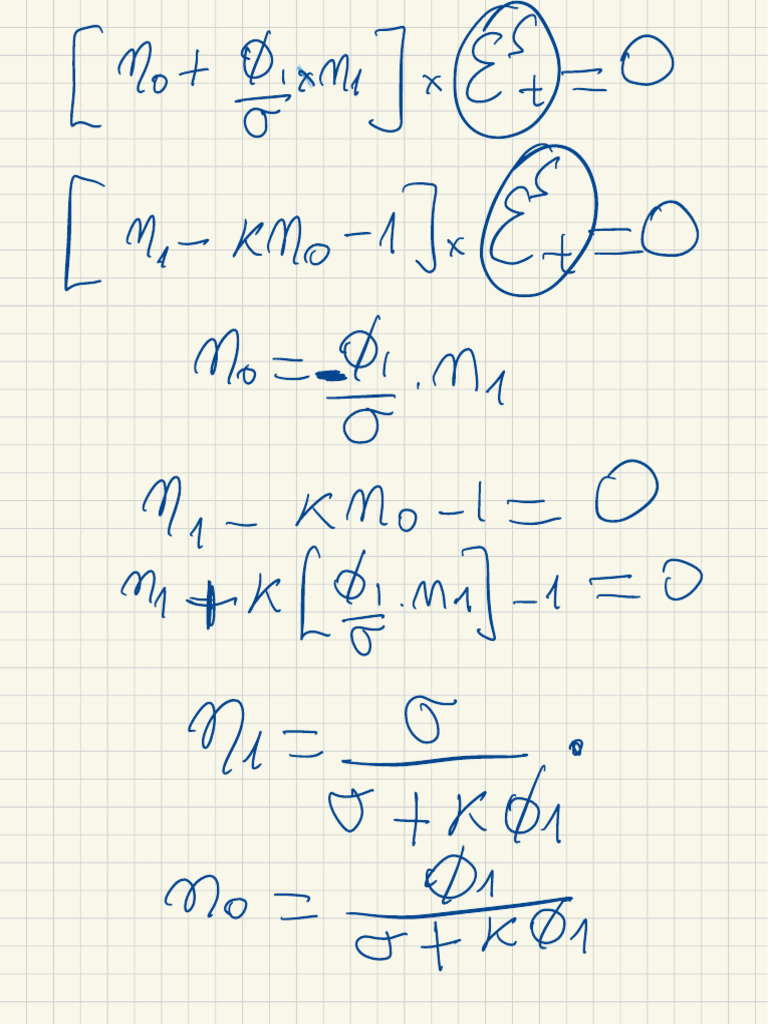 [η₀ + ϕ₁/σ × η₁] × εₜˢ = 0
[η₁ − κη₀ − 1] × εₜˢ = 0
η₀ = −ϕ₁/σ . η₁
η₁ − κη₀ − 1 = 0
η₁ + κ[ϕ₁/σ . η₁] − 1 = 0
η₁ = σ/(σ + κϕ₁) .
η₀ = ϕ₁/(σ + κϕ₁)